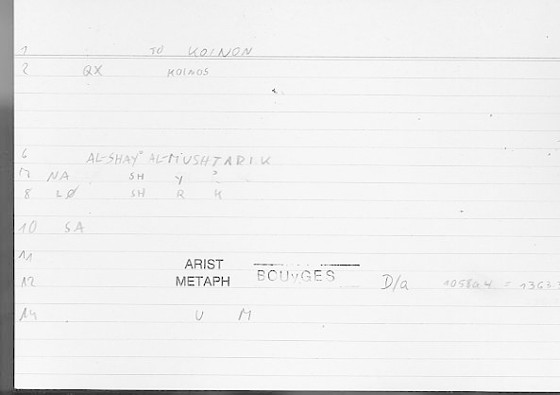 1 TO KOINON
2 QX KOINOS
6 AL-SHAYʾ AL-MUSHTARIK
7 NA SH Y ʾ
8 LØ SH R K
10 SA
11
ARIST
12 METAPH BOUyGES D/a 1058a4 = 1363.3
14 U M